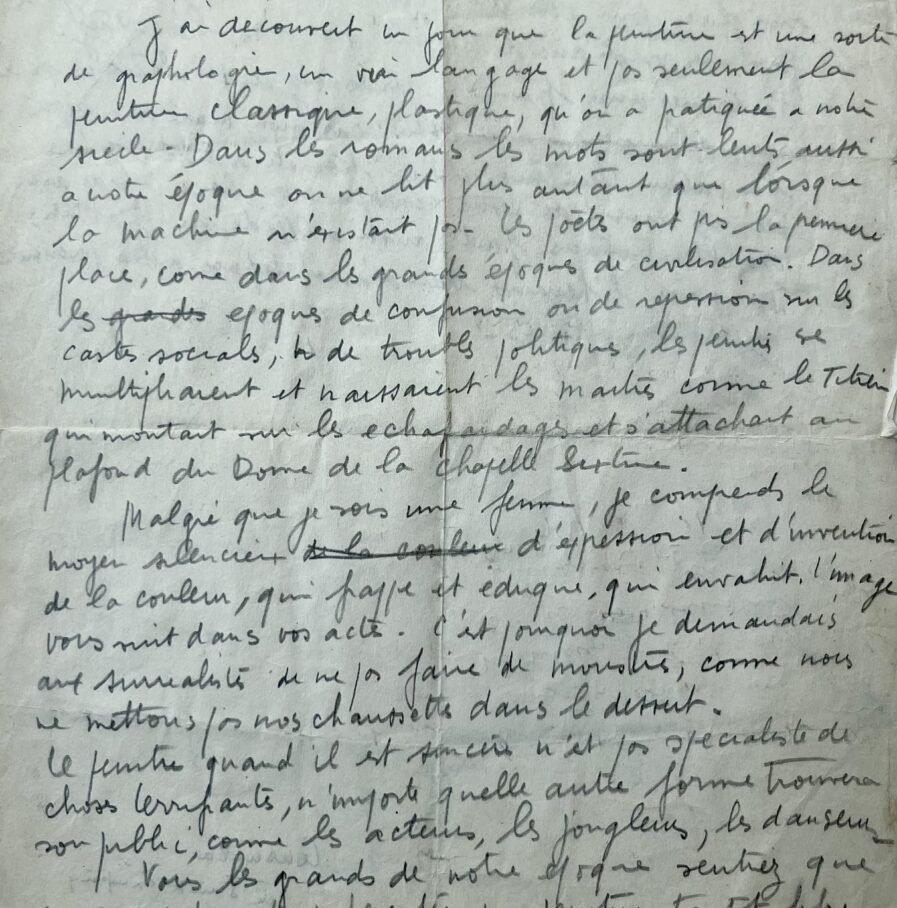 J'ai decouvert un jour que la peinture est une sorte
de graphologie, un vrai langage et pas seulement la
peinture classique, plastique, qu'on a patiquée a notre
siecle. Dans les romans les mots sont lents, aussi
a notre époque on ne lit plus autant que lorsque
la machine n'existait pas. Les poëts ont pis la premiere
place, come dans les grands époques de civilisation. Dans
les grandes epoques de confusion ou de repression sur les
castes socials, de troubles politiques, les peintres se
multipliaient et naissaient les maitres comme le Titien
qui montait sur les echafaudages et s'attachait au
plafond du Dome de la Chapelle Sextine.
Malgré que je sois une femme, je comprends le
moyen silencieux de la couleur d'éxpession et d'invention
de la couleur, qui frappe et eduque, qui envahit. l'image
vous suit dans vos actes. C'est pourquoi je demandais
aux surrealistes de ne pas faire de monstres, come nous
ne mettons pas nos chaussettes dans le dessert.
Le peintre quand il est sincère n'est pas specialiste de
choses terrifiants, n'importe quelle autre forme trouvera
son public, comme les acteurs, les jongleurs, les danseurs
Vous les grands de notre epoque sentiez que